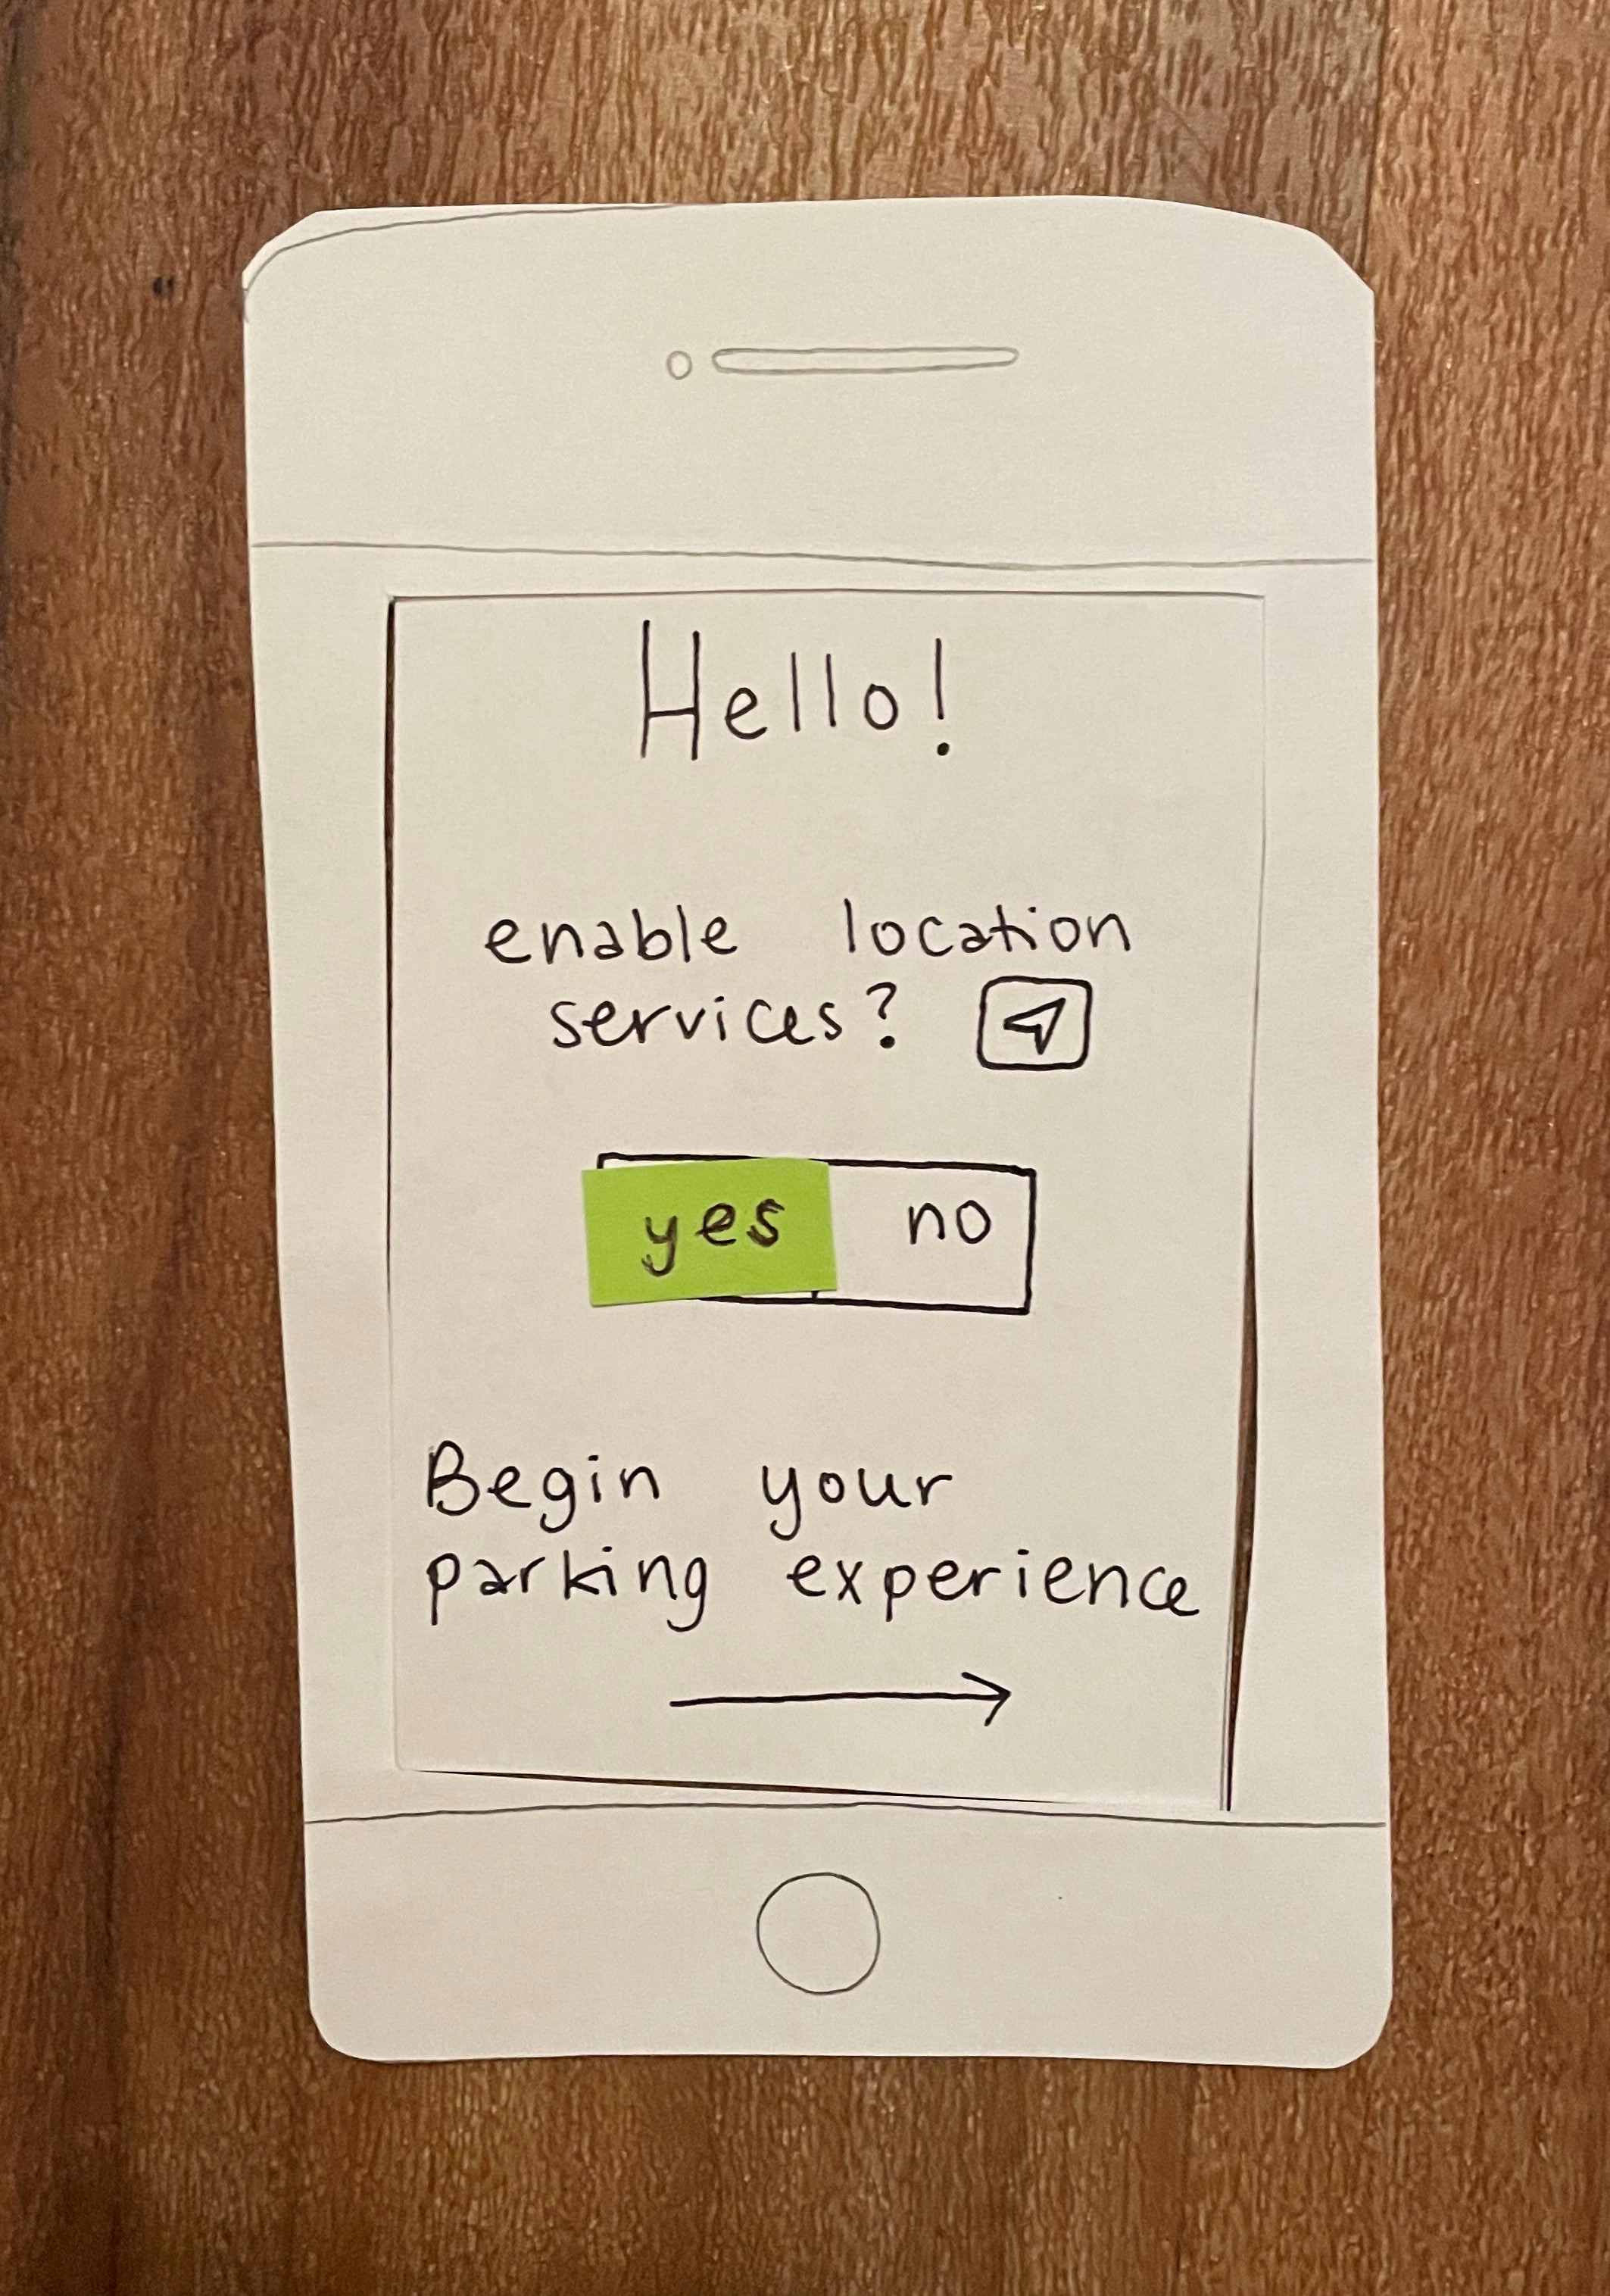 Hello!
enable location
services?
yes no
Begin your
parking experience